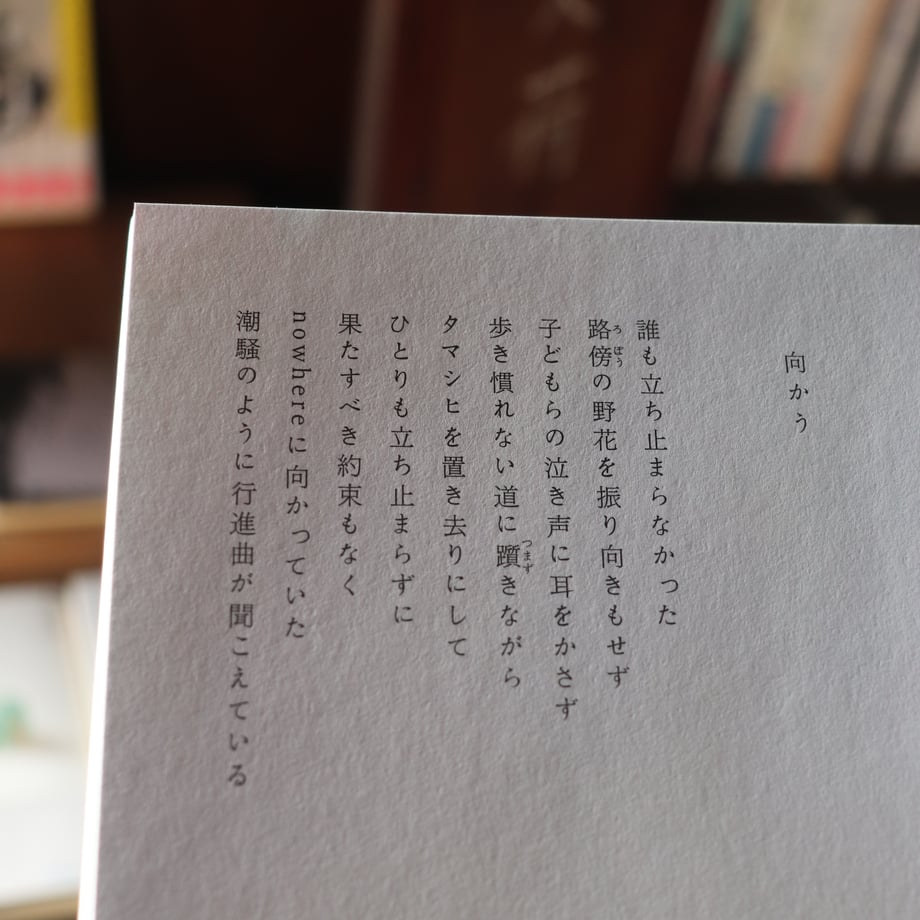 向かう
誰も立ち止まらなかった
路傍の野花を振り向きもせず
子どもらの泣き声に耳をかさず
歩き慣れない道に躓きながら
タマシヒを置き去りにして
ひとりも立ち止まらずに
果たすべき約束もなく
nowhereに向かつていた
潮騒のように行進曲が聞こえている